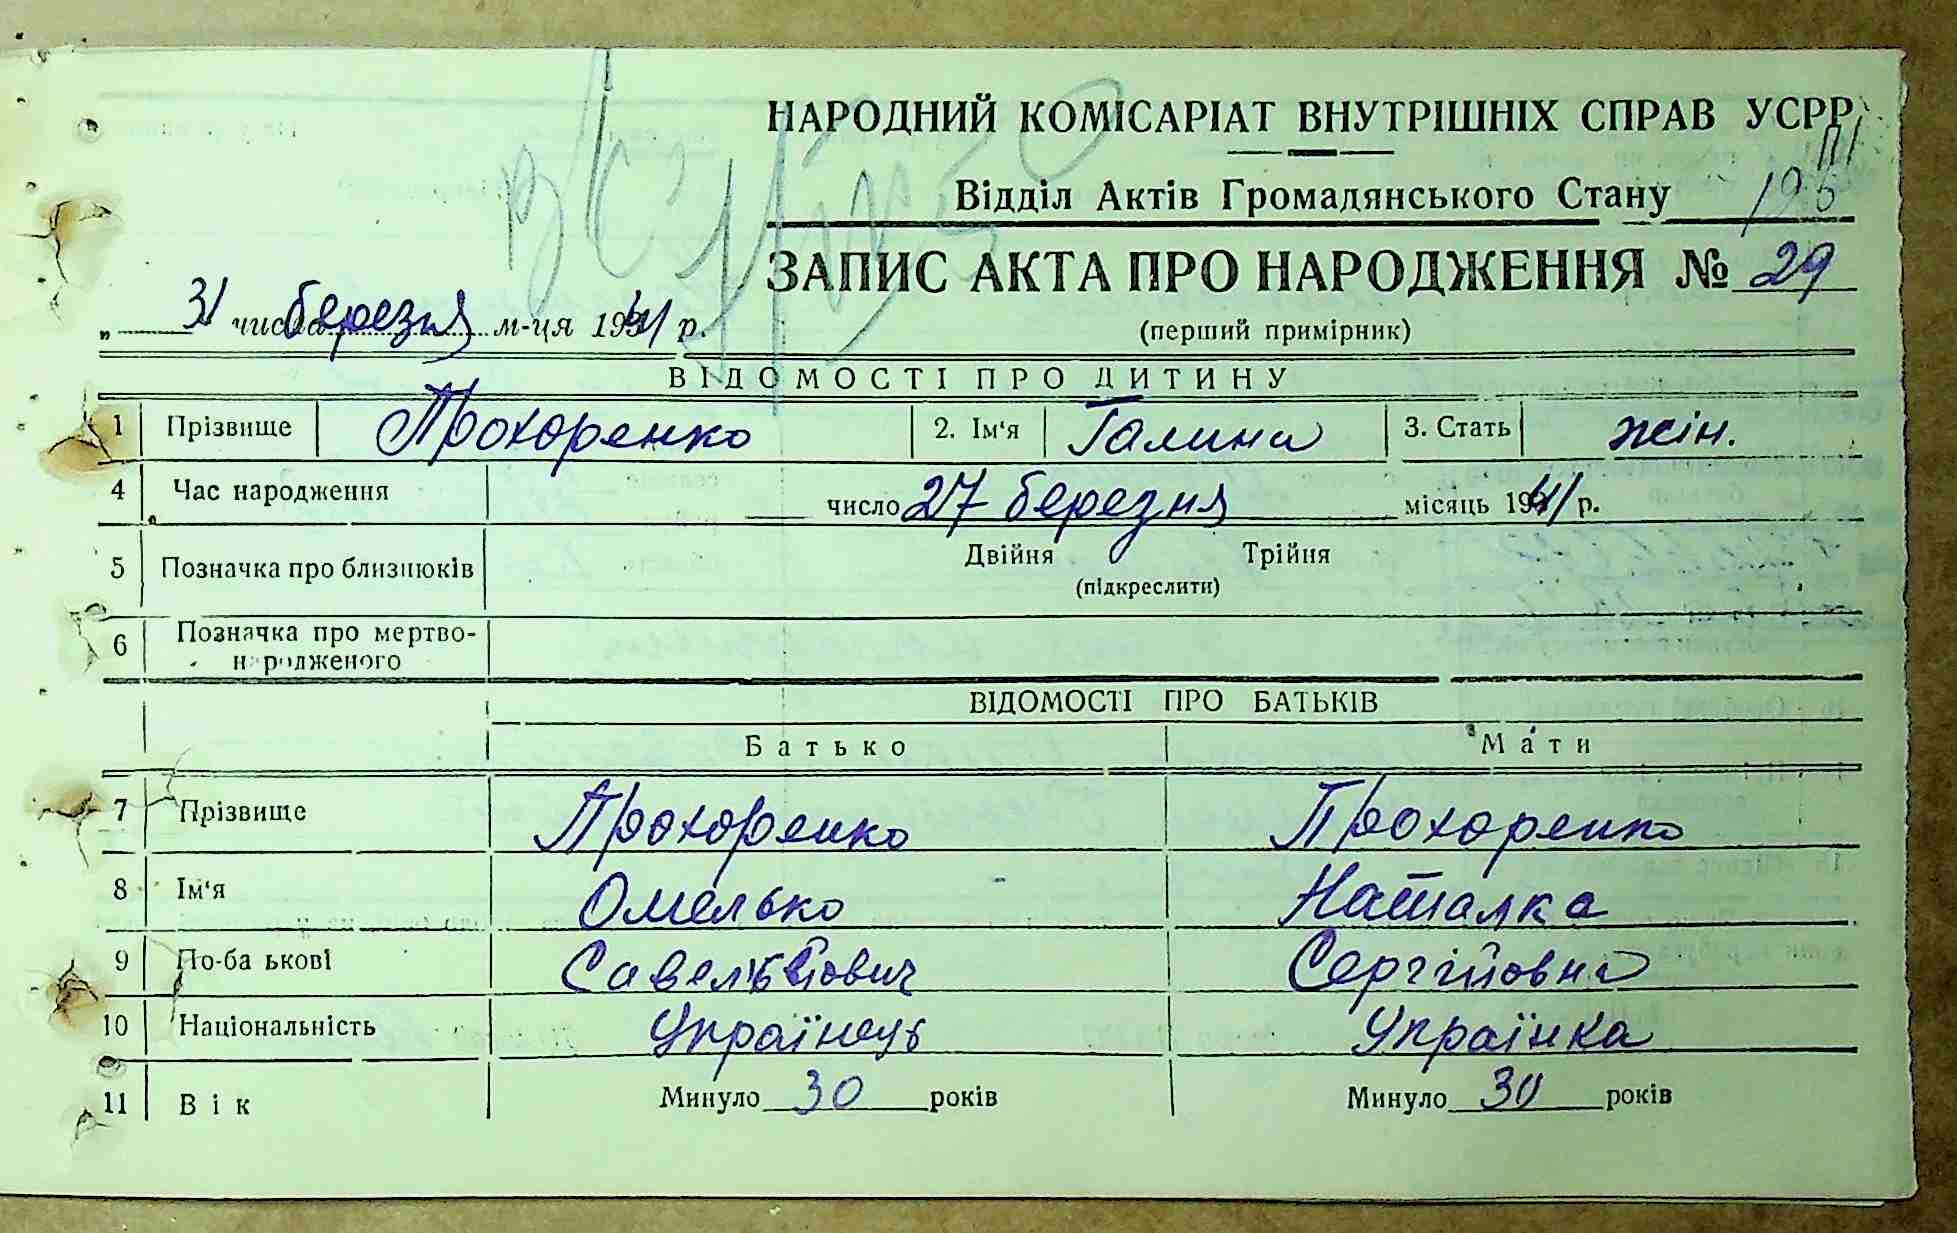 НАРОДНИЙ КОМІСАРІАТ ВНУТРІШНІХ СПРАВ УСРР
Відділ Актів Громадянського Стану
ЗАПИС АКТА ПРО НАРОДЖЕННЯ № 29
„ 31 числа березня м-ця 1941 р.
(перший примірник)
ВІДОМОСТІ ПРО ДИТИНУ
1 Прізвище Прохоренко 2. Ім‘я Галина 3. Стать жін.
4 Час народження число 27 березня місяць 1941 р.
5 Позначка про близнюків Двійня Трійня
(підкреслити)
6 Позначка про мертво-
народженого
ВІДОМОСТІ ПРО БАТЬКІВ
Батько Мати
7 Прізвище Прохоренко Прохоренко
8 Ім‘я Омелько Наталка
9 По-ба ькові Савелійович Сергійовна
10 Національність Українець Українка
11 Вік Минуло 30 років Минуло 30 років